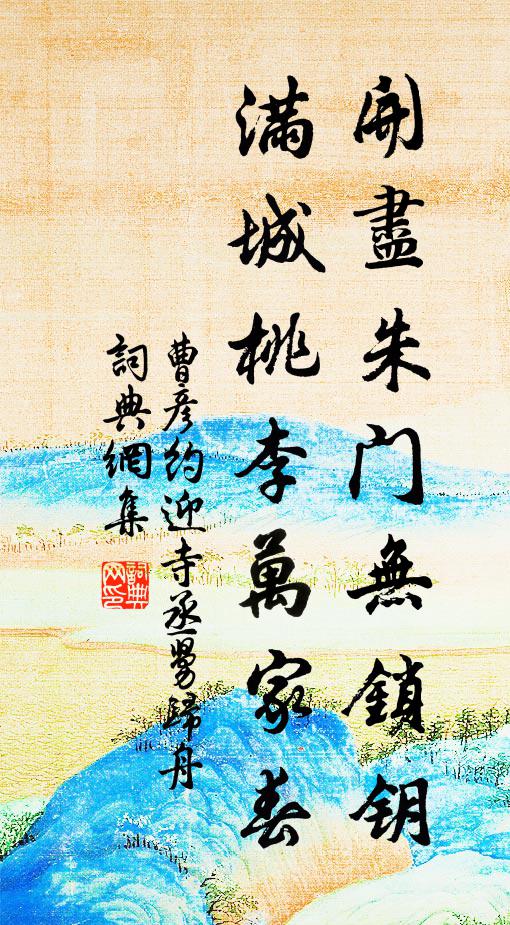 開盡朱门無鎖钥
滿城桃李萬家春
曹彦约迎寺丞舅歸舟
詞典網集
詞典网印